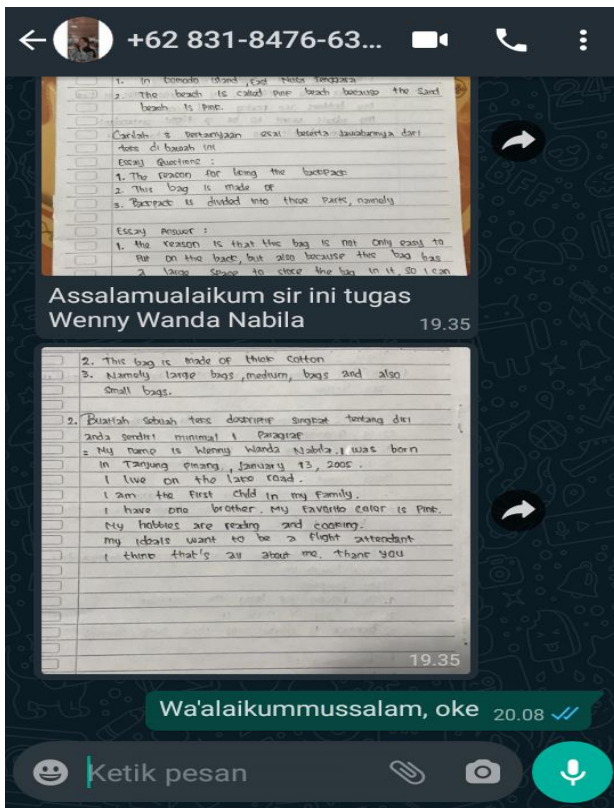 +62 831-8476-63...
1. In Comodo Island, East Nusa Tenggara
2. The beach is called pink beach because the sand
beach is pink.
Carilah = Pertanyaan esai beserta Jawabannya dari
teks di bawah ini
Essay Questions :
1. The reason for liking the backpack
2. This bag is made of
3. Backpack is divided into three parts, namely
Essay Answer :
1. the reason is that this bag is not only easy to
Put on the back, but also because this bag has
a large space to store the bag in it, so I can
Assalamualaikum sir ini tugas
Wenny Wanda Nabila
19.35
2. This bag is made of thick cotton
3. Namely large bags, medium, bags and also
small bags.
2. Buatlah sebuah teks deskriptif singkat tentang diri
anda sendiri minimal 1 Paragraf
= My name is Wenny Wanda Nabila, I was born
in Tanjung pinang, January 13, 2005.
I live on the lake road.
I am the First child in my family.
I have one brother. My Favorite color is Pink.
My hobbies are reading and cooking.
my ideals want to be a flight attendant
I think that's all about me. Thank you
19.35
Wa'alaikummussalam, oke 20.08
Ketik pesan